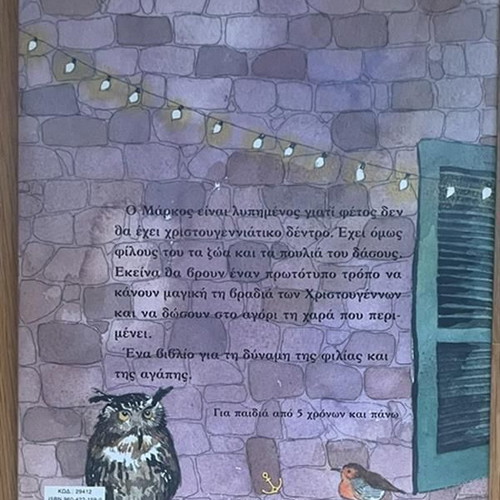 Ο Μάρκος είναι λυπημένος γιατί φέτος δεν
θα έχει χριστουγεννιάτικο δέντρο. Έχει όμως
φίλους του τα ζώα και τα πουλιά του δάσους.
Εκείνα θα βρουν έναν πρωτότυπο τρόπο να
κάνουν μαγική τη βραδιά των Χριστουγέννων
και να δώσουν στο αγόρι τη χαρά που περι-
μένει.
Ένα βιβλίο για τη δύναμη της φιλίας και
της αγάπης.
Για παιδιά από 5 χρόνων και πάνω
ΚΩΔ.: 29412